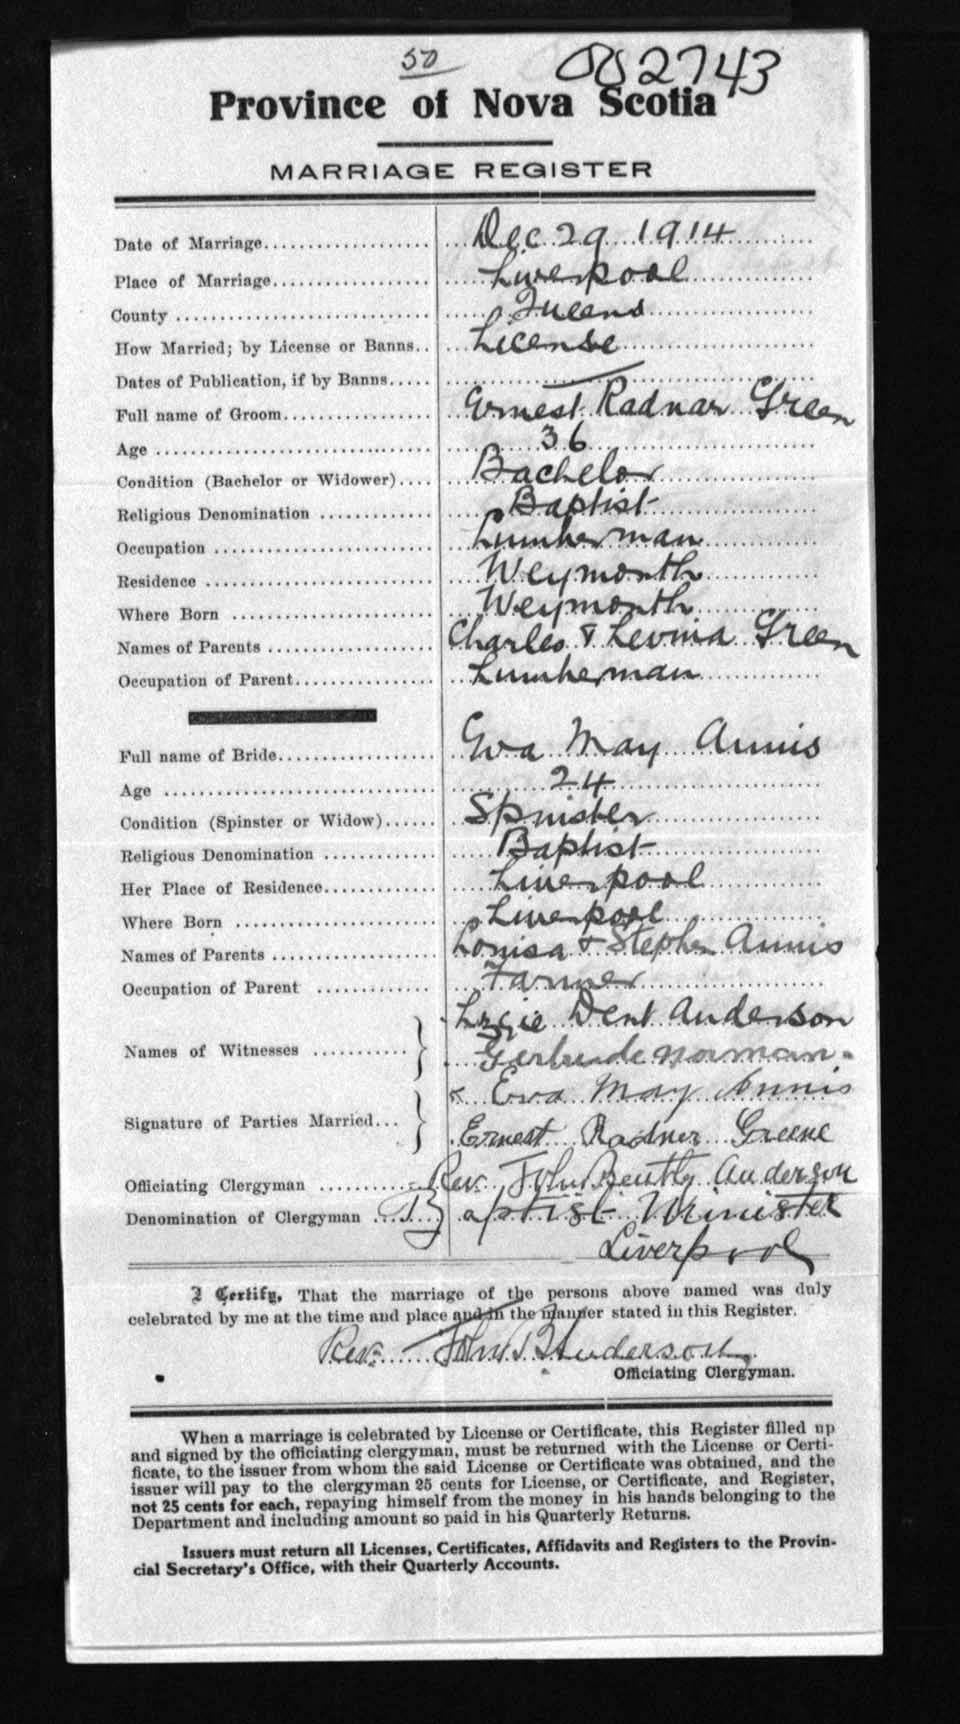 50
002743
Province of Nova Scotia
MARRIAGE REGISTER
Date of Marriage Dec 29 1914
Place of Marriage Liverpool
County Queens
How Married; by License or Banns License
Dates of Publication, if by Banns —
Full name of Groom Ernest Radnar Green
Age 36
Condition (Bachelor or Widower) Bachelor
Religious Denomination Baptist
Occupation Lumberman
Residence Weymouth
Where Born Weymouth
Names of Parents Charles & Levinia Green
Occupation of Parent Lumberman
Full name of Bride Eva May Annis
Age 24
Condition (Spinster or Widow) Spinster
Religious Denomination Baptist
Her Place of Residence Liverpool
Where Born Liverpool
Names of Parents Louisa & Stephen Annis
Occupation of Parent Farmer
Lizzie Dent Anderson
Names of Witnesses Gertrude Norman
x Eva May Annis
Signature of Parties Married Ernest Radner Greene
Officiating Clergyman Rev. John Bently Anderson
Denomination of Clergyman Baptist Minister
Liverpool
I Certify, That the marriage of the persons above named was duly
celebrated by me at the time and place and in the manner stated in this Register.
Rev. John B Anderson
Officiating Clergyman.
When a marriage is celebrated by License or Certificate, this Register filled up
and signed by the officiating clergyman, must be returned with the License or Certi-
ficate, to the issuer from whom the said License or Certificate was obtained, and the
issuer will pay to the clergyman 25 cents for License, or Certificate, and Register,
not 25 cents for each, repaying himself from the money in his hands belonging to the
Department and including amount so paid in his Quarterly Returns.
Issuers must return all Licenses, Certificates, Affidavits and Registers to the Provin-
cial Secretary's Office, with their Quarterly Accounts.